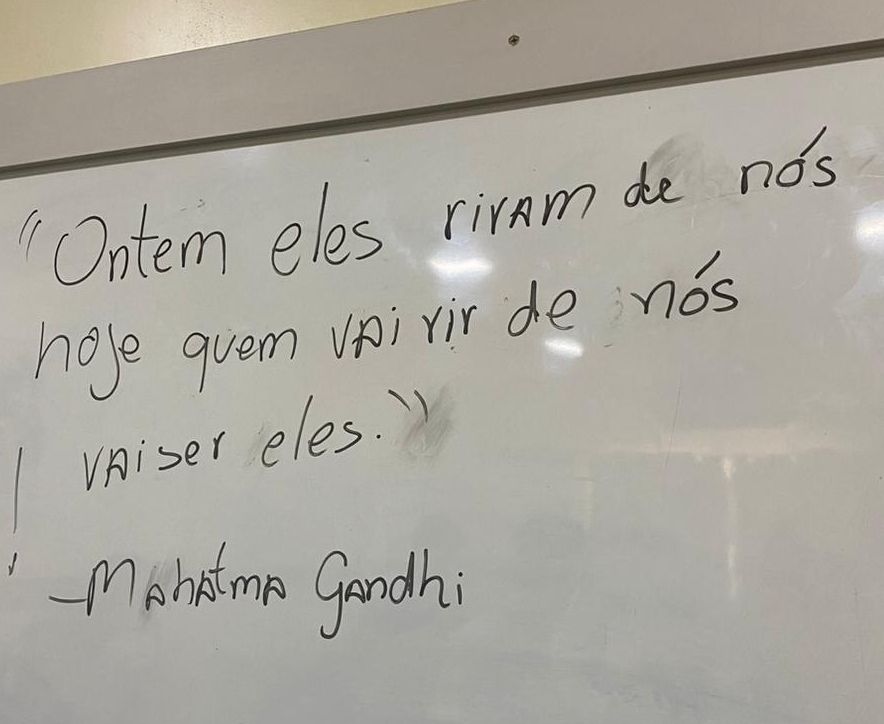 "Ontem eles riram de nós
hoje quem vai rir de nós
vai ser eles."
-Mahatma Gandhi